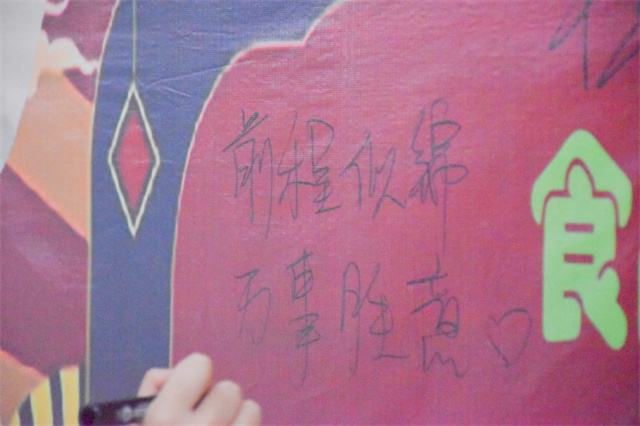 前程似锦
万事胜意
食